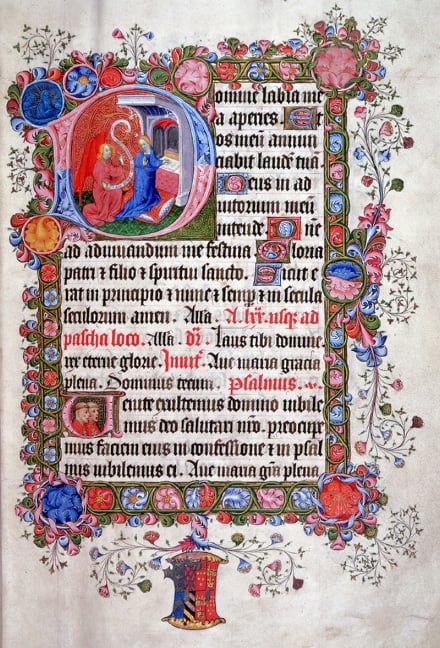 Domine labia me
a aperies. Et
os meū annun
ciabit laudē tuā
Deus in ad
iutorium meū
intende. Dñe
ad adiuuandum me festina. Gloria
patri ⁊ filio ⁊ spiritui sancto. Sicut e
rat in principio ⁊ nunc ⁊ semp̄ ⁊ in secula
seculorum amen. Alla. A .lxx. usqꝫ ad
pascha loco. Alla. dr̄. Laus tibi domine
rex eterne glorie. Inuit̄. Aue maria gracia
plena. Dominus tecum. Psalmus.
Uenite exultemus domino iubile
mus deo salutari nr̄o. preocupe
mus faciem eius in confessione ⁊ in psal
mis iubilemus ei. Aue maria gr̄a plena